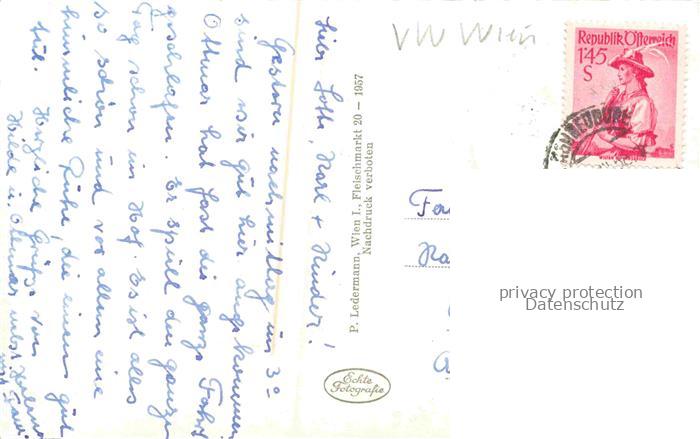 Liebe Lotte, Karl + Kinder!
Gestern nachmittag um 3º
sind wir gut hier angekommen
Ottmar hat fast die ganze Fahrt
geschlafen. Er spielt den ganzen
Tag schon im Hof. Es ist alles
so schön und vor allem eine
himmlische Ruhe, die einem gut
tut. Herzliche Grüße von
Hilde u. Ottmar
P. Ledermann, Wien I., Fleischmarkt 20 — 1957
Nachdruck verboten
Echte
Fotografie
VW Wien
Republik Österreich
1'45
S
privacy protection
Datenschutz